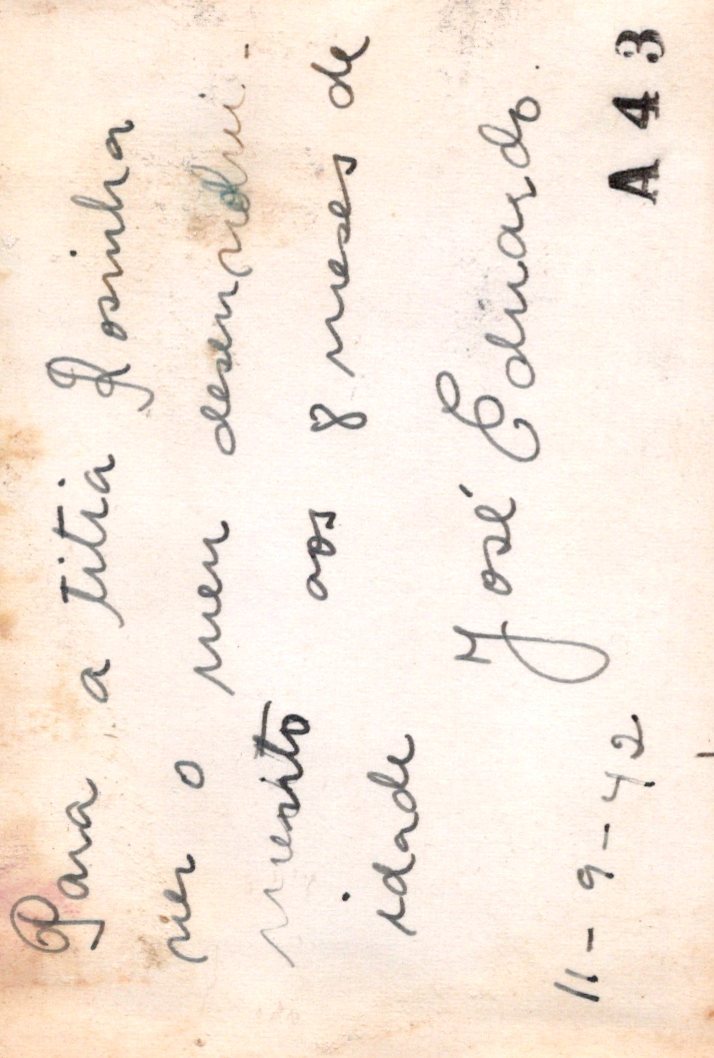 Para a titia Rosinha
ver o meu desenvolvi-
mento aos 8 meses de
idade
José Eduardo.
11-9-42
A 43